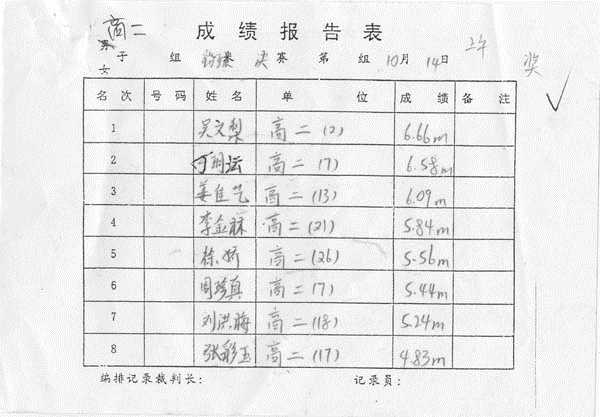 高二 成绩报告表
男子 组 决赛 第 组 10月14日 上午 奖
女
名次 号码 姓名 单位 成绩 备注
1 吴文梨 高二(2) 6.66m
2 高二(7) 6.58m
3 姜佳艺 高二(13) 6.09m
4 李金 高二(21) 5.84m
5 徐娇 高二(26) 5.56m
6 周珍真 高二(7) 5.44m
7 刘洪梅 高二(18) 5.24m
8 张彩玉 高二(17) 4.83m
编排记录裁判长： 记录员：